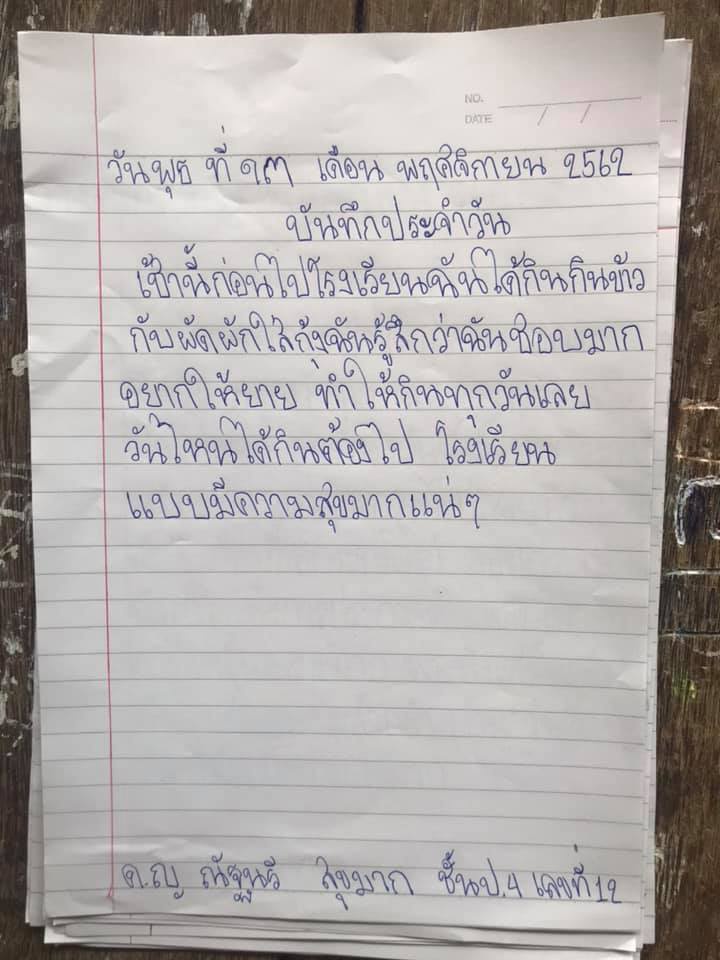 NO.
DATE / /
วันพุธ ที่ ๑๓ เดือน พฤศจิกายน 2562
บันทึกประจำวัน
เช้านี้ก่อนไปโรงเรียนฉันได้กินกินข้าว
กับผัดผักใส่กุ้งฉันรู้สึกว่าฉันชอบมาก
อยากให้ยาย ทำให้กินทุกวันเลย
วันไหนได้กินต้องไป โรงเรียน
แบบมีความสุขมากแน่ๆ
ด.ญ สุขมาก ชั้นป.4 เลขที่ 12